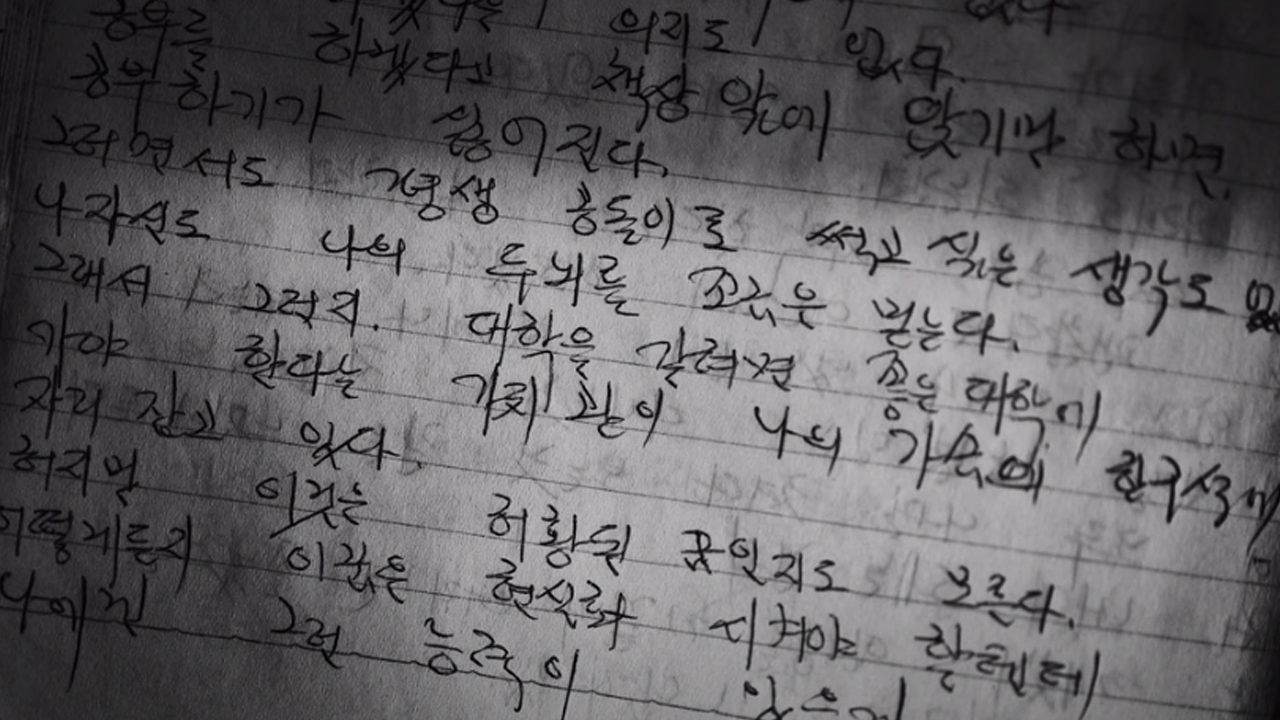 의리도 없다.
공부를 하겠다고 책상 앞에 앉기만 하면
공부하기가 싫어진다.
그러면서도 평생 공돌이로 썩고 싶은 생각도 없
나 자신도 나의 두뇌를 믿는다.
그래서 그런지. 대학을 갈려면 좋은 대학에
가야 한다는 가치관이 나의 가슴에 한구석에
자리 잡고 있다.
허지만 이것은 허황된 꿈인지도 모른다.
어떻게든지 이 꿈을 현실화 시켜야 할텐데
나에겐 그런 능력이